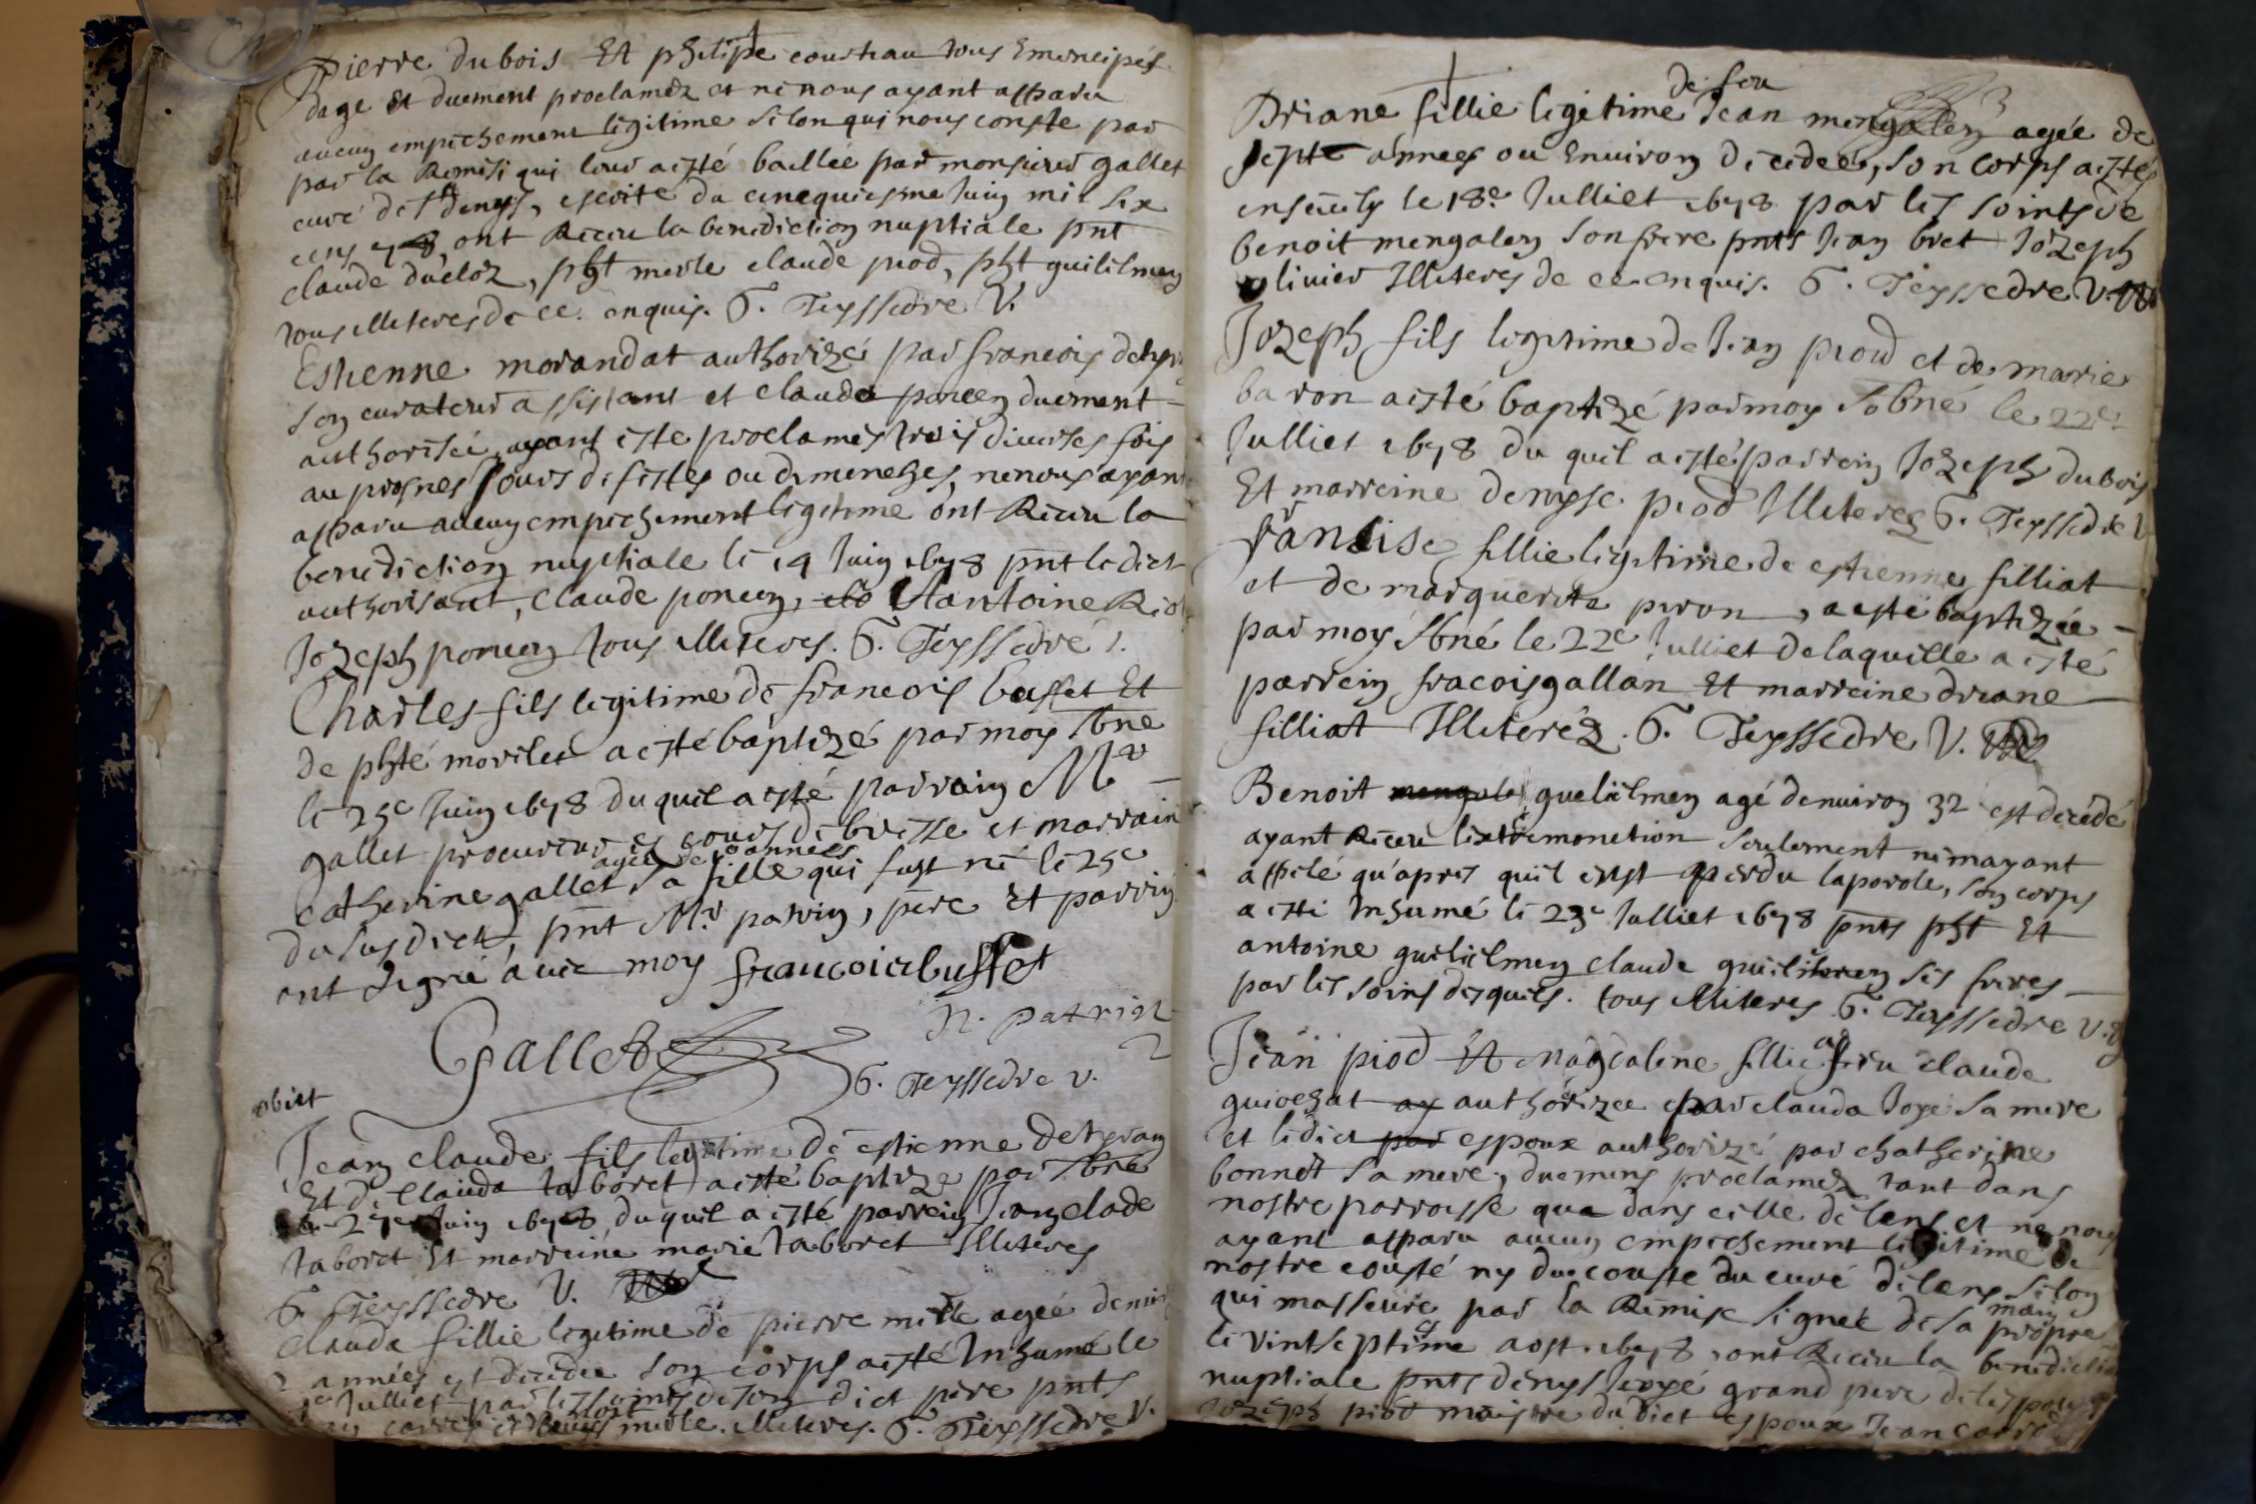 Pierre dubois Et philipe coustrau tous Emencipés
dage Et duement proclamez et ne nous ayant apparu
aucun empechement legitime selon qui nous conste par
par la Remise qui leur a esté baillée par monsieur gallet
curé de St denys, escrite du cinequiesme Juin mil six
cens 78, ont Receu la benediction nuptiale pnt
claude ducloz, pht merle claude piod, pht guilielmen
tous illiteres de ce enquis. G. Teyssedre V.
Estienne morandat authorizé par francois
son curateur assistant et clauda poncen duement
authorisée ayant esté proclamés trois diverses fois
au prosnes Jours de festes ou dimenches, ne nous ayant
apparu aucun empechement legitime ont Receu la
benediction nuptiale le 14 Juin 1678 pnt le dict
authorisant, claude poncen, Antoine
Jozeph poncen tous illiteres. G. Teyssedre V.
Charles fils legitime de francois buffet Et
de phté morilet a esté baptizé par moy sbné
le 25e Juin 1678 du quel a esté parrain Mr
gallet procureur es cours de bresse et marrain
agée de annees
catherine gallet sa fille qui fust né le 25e
du susdict, pnt Mr patrin, pere Et parrin
ont signé avec moy francois buffet
N. patrin
Gallet
G. Teyssedre v.
obiit
Jean claude fils legitime de estienne
Et de Clauda taboret a esté baptize par sbné
le 27e Juin 1678 du quel a esté parrein Jean clade
taboret Et marreine marie taboret Illiteres
G. Teyssedre V.
Clauda fillie legitime de pierre merle agée
2 années est decedee son corps a esté Inhumé le
Julliet par les soints de son dict pere pnts
carré et merle. illiteres. G. Teyssedre V.
de feu
Driane fillie legitime Jean mengalen agée de
septe années ou Environ decedeé, son corps a esté
enseuely le 18e Julliet 1678 par les soints de
benoit mengalen son frere pnts Jean bret Jozeph
olivier Illiteres de ce enquis. G. Teyssedre V.
Jozeph fils legitime de Jean piod et de marie
baron a esté baptizé par moy sobné le 22e
Julliet 1678 du quel a esté parrein Jozeph dubois
Et marreine denyse piod Illiteres G. Teyssedre V
franSise fillie legitime de estienne filliat
et de marguerite piron, a esté baptizée
par moy sbné le 22e Julliet de laquelle a esté
parrein fracois gallan Et marreine driane
filliat Illiteréz. G. Teyssedre V.
Benoit guelielmen agé denviron 32 est decedé
ayant Receu lextremonction seulement ne mayant
appelé qu'apres quil eust perdu la parole, son corps
a esté Inhumé le 23e Julliet 1678 pnts pht Et
antoine guilielmen claude guilielmen ses freres
par les soins desquels. tous illiteres G. Teyssedre V.
Jean piod Et magdalene fillie a feu claude
guichat authorizee par clauda Joye sa mere
et ledict espoux authorizé par chatherine
bonnet sa mere, duemens proclamez tant dans
nostre parroisse que dans celle de lens et ne nous
ayant apparu aucun empechement legitime de
nostre cousté ny du couste du curé de lens selon
qui masseure par la Remise signee de sa propre main
le vintseptime aost 1678 ont Receu la benediction
nuptiale pnts denys Joyé grand pere de lespouse
Jozeph piod maistre du dict espoux Jean carré